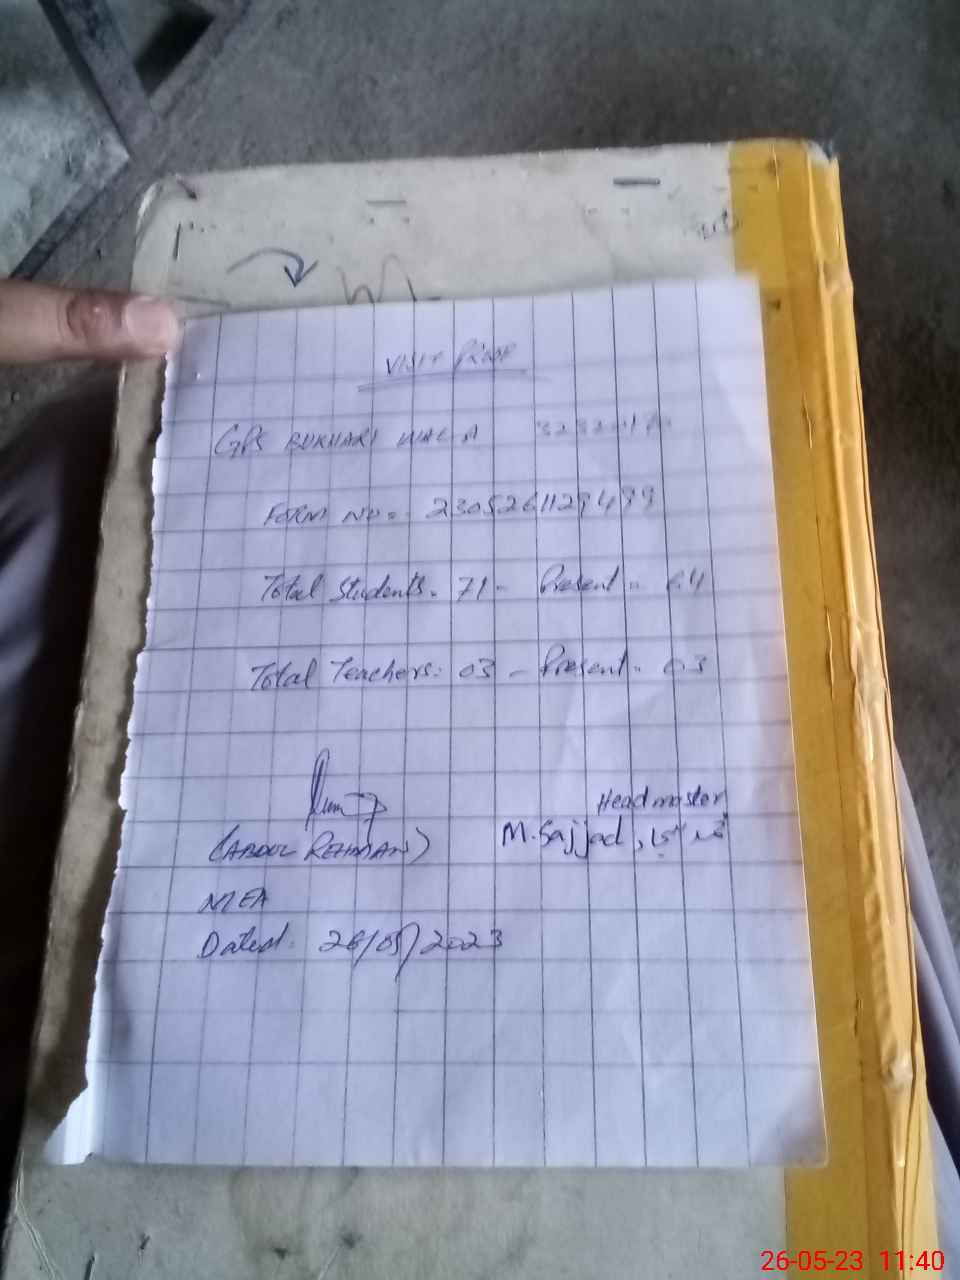 VISIT PROOF
GPS BUKHARI WALA
FORM NO:- 2305261129499
Total Students:- 71 - Present:- 64
Total Teachers: 03 - Present:- 03
Headmaster
(ABDUL REHMAN) M. Sajjad,
MEA
Dated: 26/05/2023
26-05-23 11:40